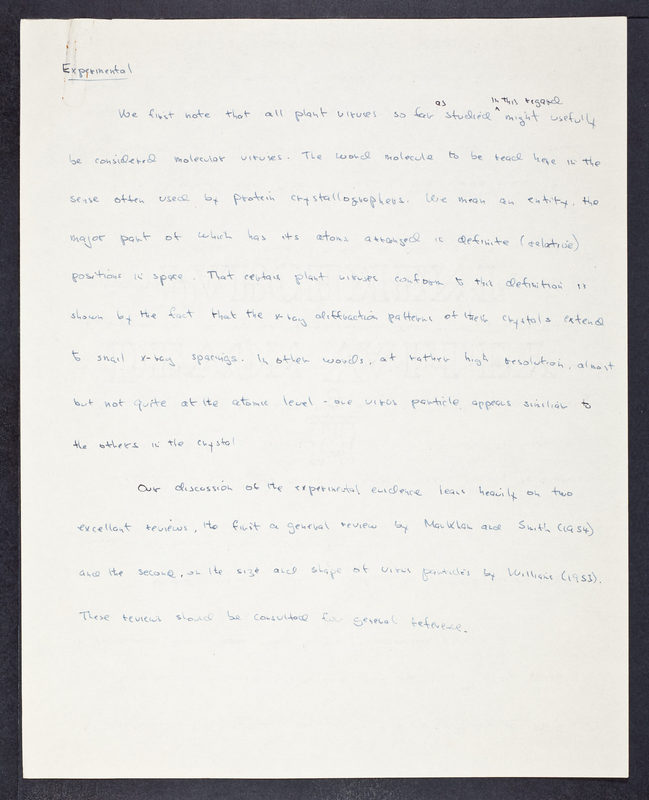 Experimental
We first note that all plant viruses so far as studied in this regard might usefully
be considered molecular viruses. The word molecule to be read here in the
sense often used by protein crystallographers. We mean an entity, the
major part of which has its atoms arranged in definite (relative)
positions in space. That certain plant viruses conform to this definition is
shown by the fact that the x-ray diffraction patterns of their crystals extend
to small x-ray spacings. In other words, at rather high resolution, almost
but not quite at the atomic level - one virus particle appears similiar to
the others in the crystal
Our discussion of the experimental evidence leans heavily on two
excellant reviews, the first a general review by Markham and Smith (1954)
and the second, on the size and shape of virus particles by Williams (1953).
These reviews should be consulted for general reference.